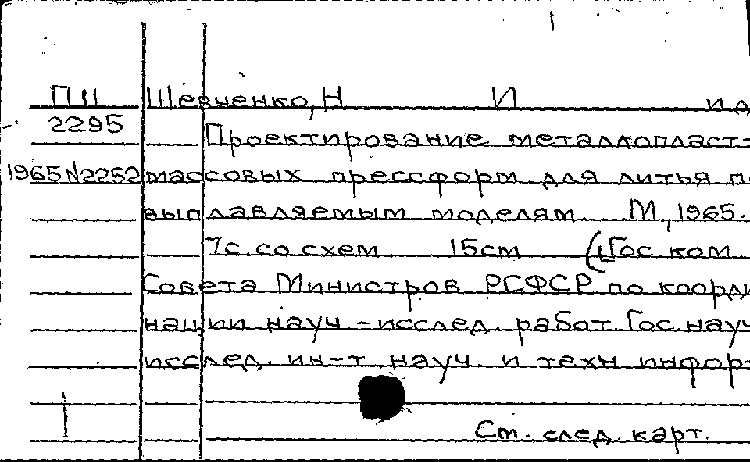 ПН Шевченко, Н И и д
2295 Проектирование металлопласт-
1965 N2252 массовых прессформ для литья п
выплавляемым моделям М, 1965.
7с. со схем 15см (Гос ком
Совета Министров РСФСР по коорди
нации науч -исслед. работ. Гос. науч
исслед. ин-т науч. и техн информ
См. след. карт.